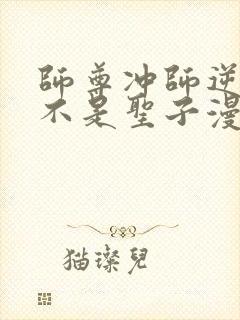 師尊冲師逆
不是聖子漫
猫璨兒